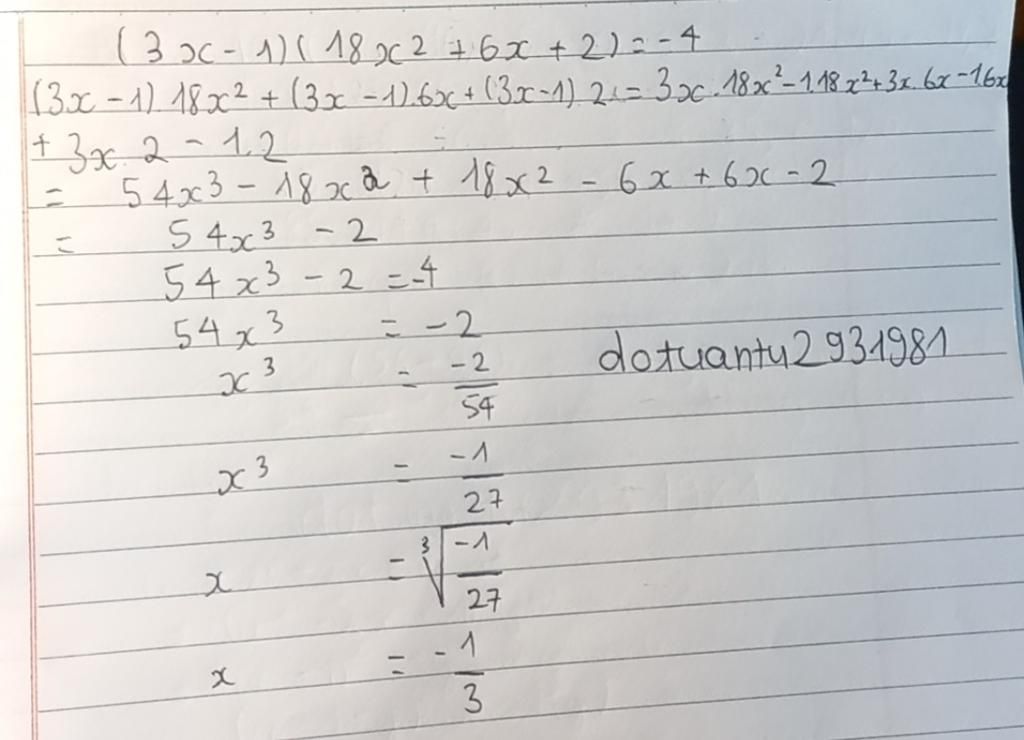 (3x - 1)(18x² + 6x + 2) = -4
(3x - 1) 18x² + (3x - 1).6x + (3x - 1) 2 = 3x.18x² - 1.18x² + 3x.6x - 1.6x
+ 3x.2 - 1.2
= 54x³ - 18x² + 18x² - 6x + 6x - 2
= 54x³ - 2
54x³ - 2 = -4
54x³ = -2
x³ = -2/54
dotuantu2931981
x³ = -1/27
x = ∛(-1/27)
x = -1/3